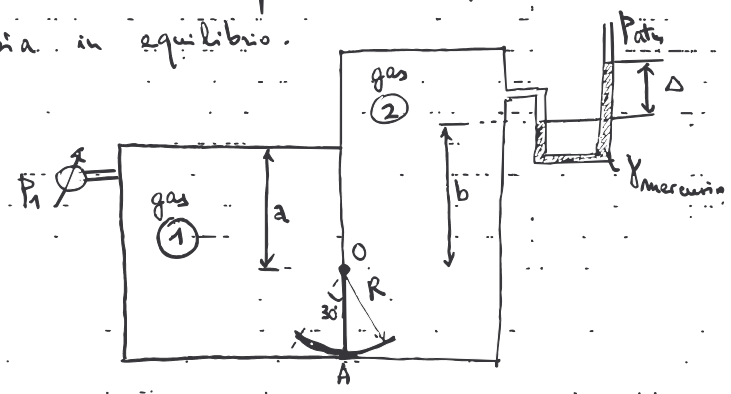 in equilibrio.
Patm
gas
2
Δ
b
γmercurio
P1
gas
1
a
O
R
30°
A